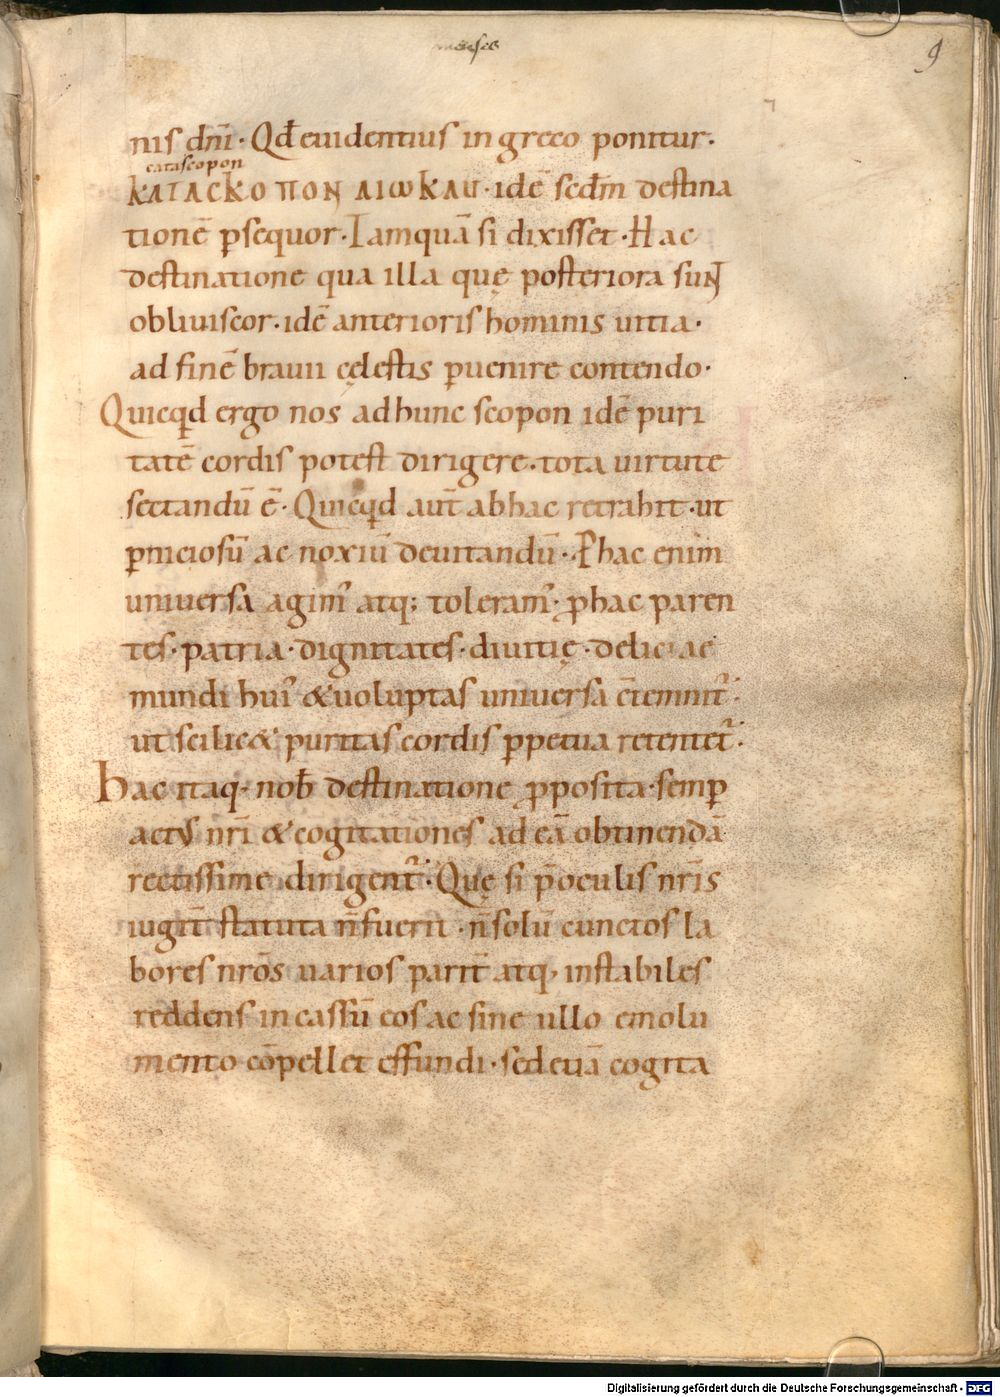 9
nis dn̄i· Qđ euidentius in greco ponitur·
catascopon
ΚΑΤΑСΚΟ ΠΟΝ ΔΙωΚΑΩ· idē scđm destina
tionē ꝑsequor· Iamquā si dixisset· Hac
destinatione qua illa quę posteriora suɴt
obliuiscor· idē anterioris hominis uitia·
ad finē brauii cęlestis ꝑuenire contendo·
Quicqd̄ ergo nos ad hunc scopon idē puri
tatē cordis potest dirigere· tota uirtute
sectandū ē· Quicqd̄ aut̄ ab hac retrahit· ut
ꝑniciosū ac noxiū deuitandū· P hac enim
uniuersa agim᷒ atq; toleram᷒· ꝓ hac paren
tes· patria· dignitates· diuitię· deliciae
mundi hui᷒ & uoluptas uniuersa c̄temnit᷑·
ut scilic& puritas cordis ꝑpetua retentet᷑·
Hac itaq· nob̄ destinatione ꝓposita· semꝑ
actus nr̄i & cogitationes ad eā obtinendā
rectissime dirigent᷑· Quę si p̄ oculis nr̄is
iugit̄ statuta n̄ fuerit· n̄ solū cunctos la
bores nr̄os uarios parit̄ atq, instabiles
reddens in cassū eos ac sine ullo emolu
mento cōpellet effundi· sed etiā cogita
Digitalisierung gefördert durch die Deutsche Forschungsgemeinschaft - DFG